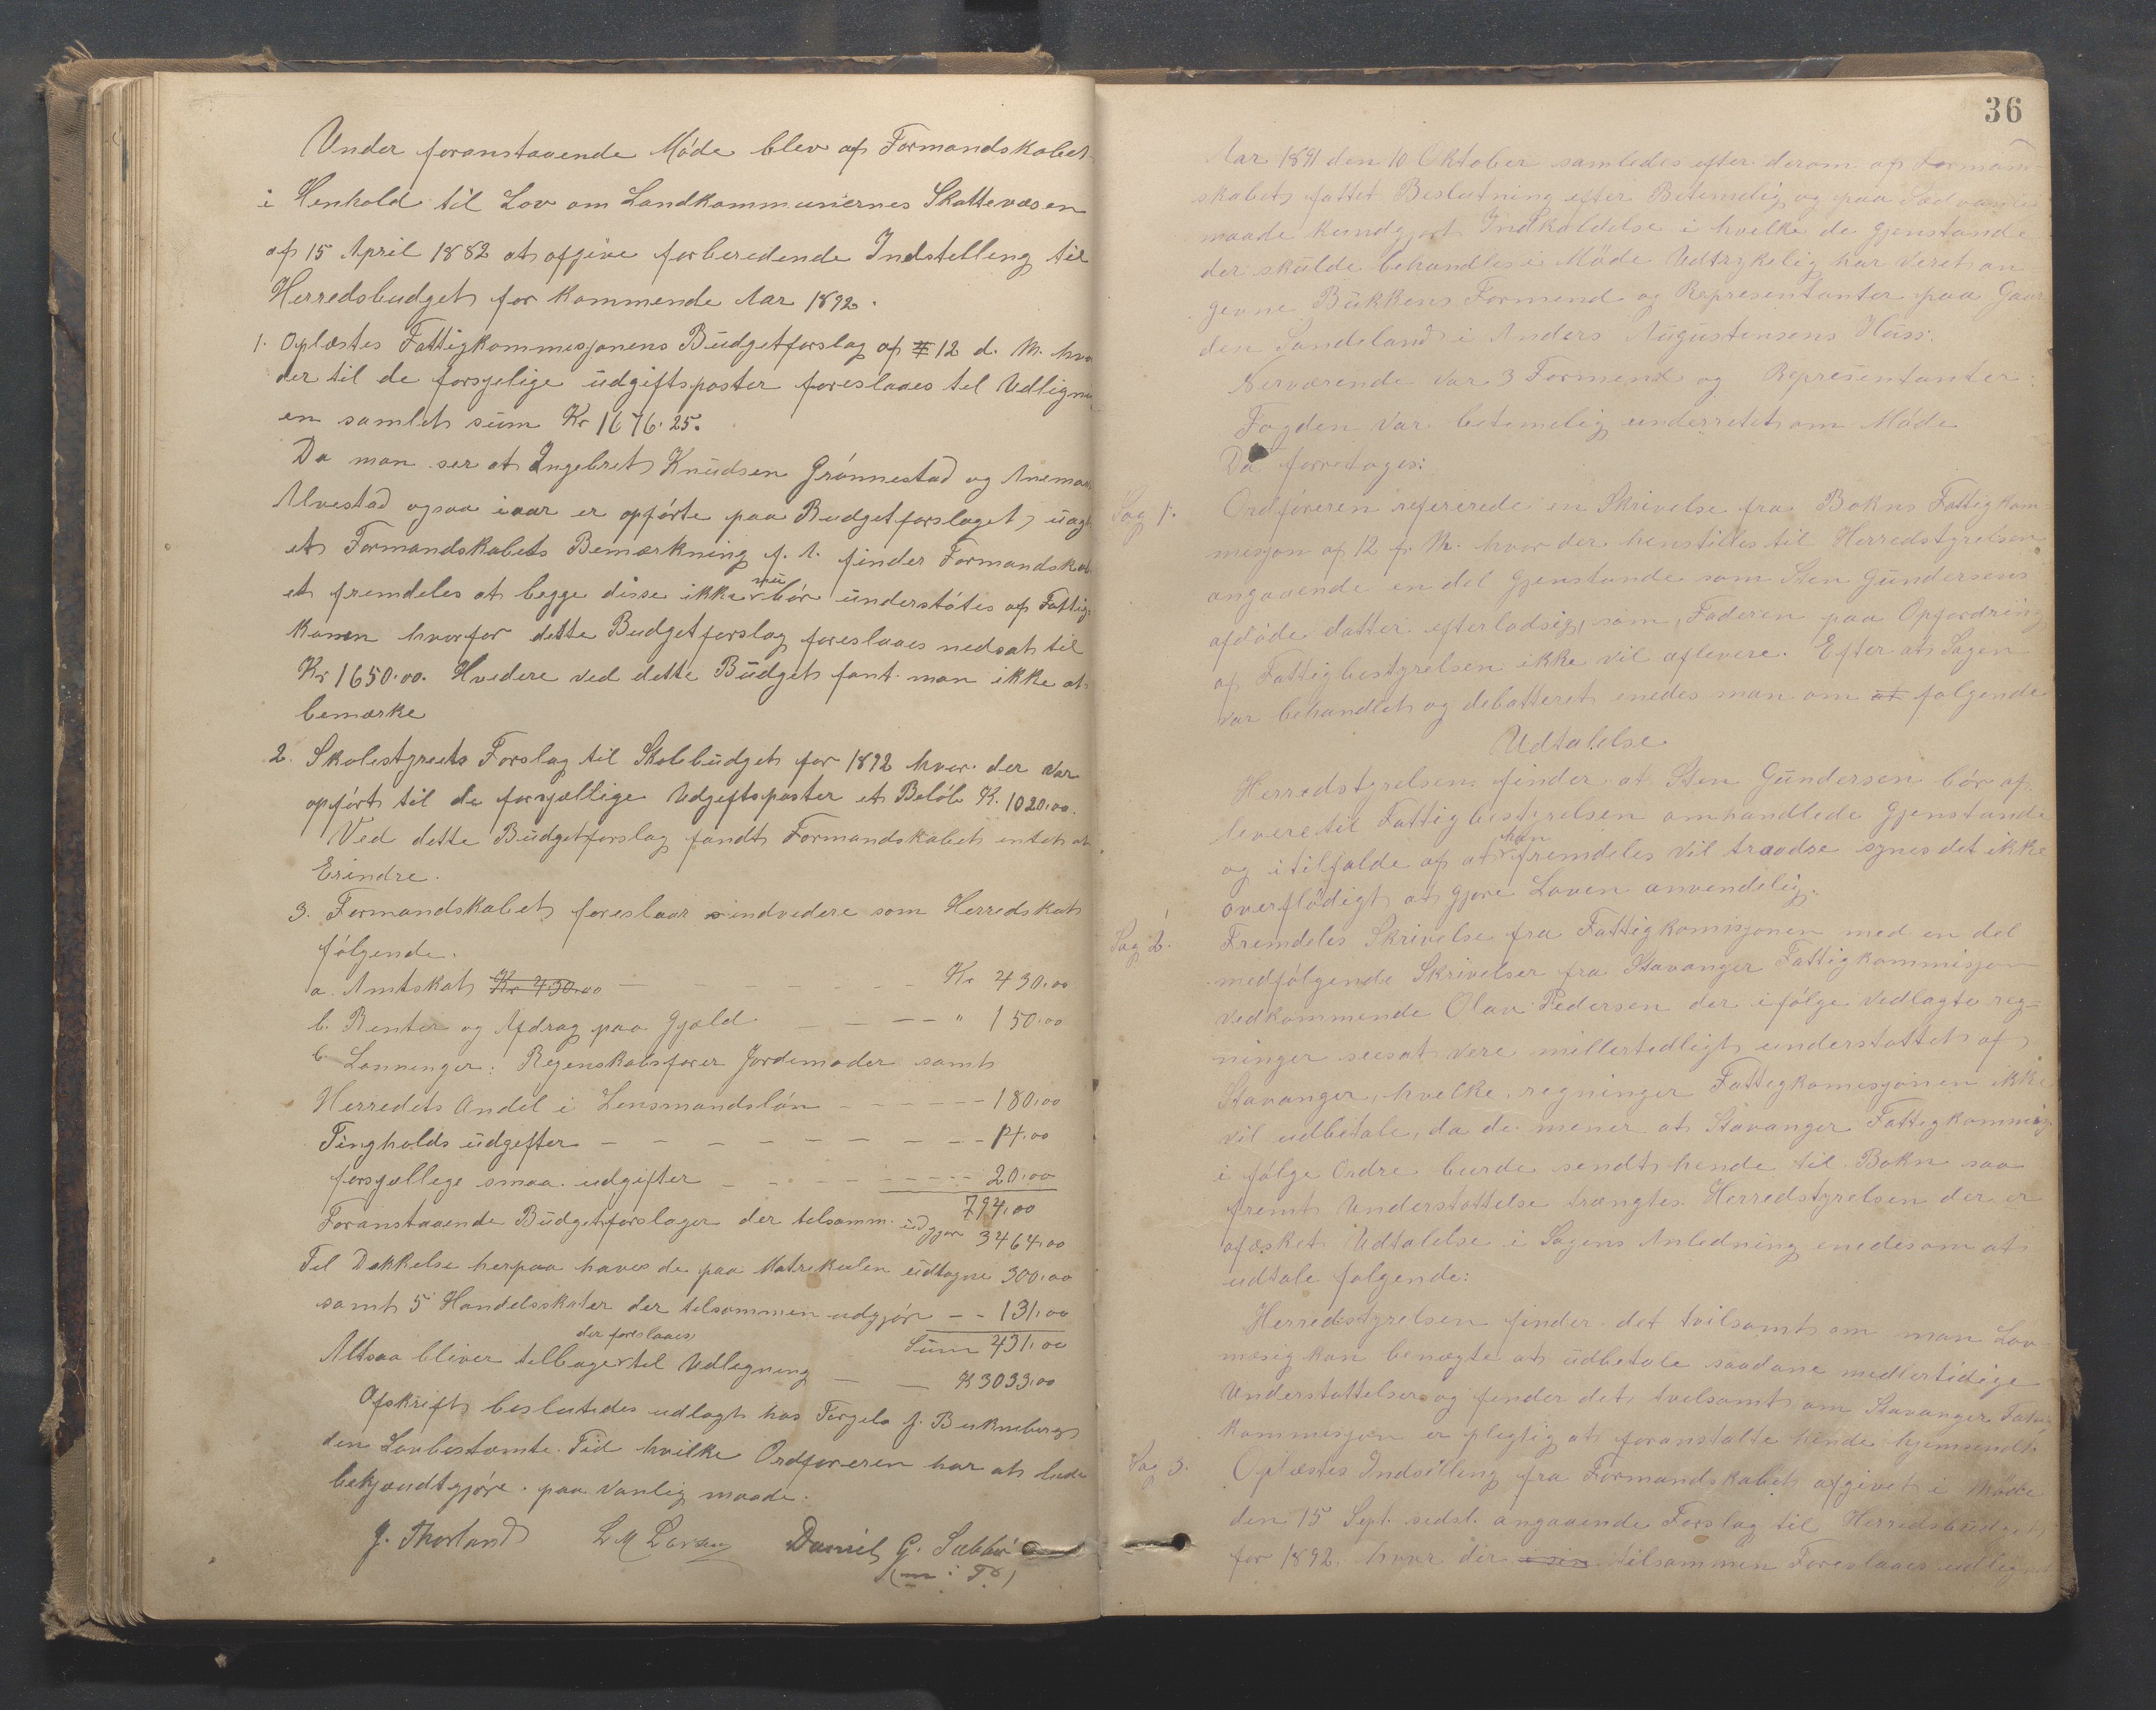 Under foranstaaende Møde blev af Formandskabet
i Henhold til Lov om Landkommunernes Skattevæsen
af 15 April 1882 at afgive forberedende Indstelling til
Herredsbudget for kommende Aar 1892.
1. Oplæstes Fattigkommesjonens Budgetforslag af 12 d. M. hvo
der til de forsjelige udgiftsposter foreslaaes tel Udligni
en samlet sum Kr 1676.25.
Da man ser at Ingebret Knudsen Grønnestad og Anema
Alvestad ogsaa iaar er opførte paa Budgetforslaget uagt
et Formandskabets Bemærkning f. A. finder Formandskab
et fremdeles at begge disse ikke nu bør understøtes af Fattig-
kassen hvorfor dette Budgetforslag foreslaaes nedsat til
Kr 1650.00. Hvedere ved dette Budget fant man ikke at
bemærke
2. Skolestyrets Forslag til Skolebudget for 1892 hvor der var
opført til de forsjellige Udgeftsposter et Beløb K. 1020.00.
Ved dette Budgetforslag fandt Formandskabet entet at
Erindre.
3. Formandskabet foreslaar indvedere som Herredskat
følgende.
a. Amtskat Kr 430.00 - - - - - Kr 430.00
b. Renter og Afdrag paa Gjæld - - - " 150.00
c Lønninger: Regenskabsfører Jordemoder samt
Herredets Andel i Lensmandsløn - - - - - 180.00
Tingholds udgefter - - - - - - - - 14.00
forsjellege smaa udgifter - - - - - - 20.00
794.00
Foranstaaende Budgetforslager der telsamm. udgjør 3464.00
Tel Dekkelse herpaa haves de paa Matrekulen udtagne 300.00
samt 5 Handelsskater der telsammen udgjør - - 131.00
Sum 431.00
der foreslaaes
Altsaa bliver telbage til Udlegning - - K 3033.00
Afskrift besluttedes udlagt hos Torgels J. Bukneberg
den Lovbestemte Tid hvilke Ordføreren har at lade
bekjendtgjøre paa vanlig maade.
J. Thorland Daniel G. Sæbbø
(m. i P.)
36
Aar 1891 den 10 Oktober samledes efter derom af Formand
skabet fattet Beslutning efter Betemelig og paa Sedvanlig
maade kundgjort Indkaldelse i hvelke de Gjenstande
der skulde behandles i Møde Udtrykelig har veret an-
gevne Bukkens Formend og Representanter paa Gaar
den Sandeland i Anders Augustensens Huss.
Nerværende var 3 Formend og Representanter.
Fogden var betemelig underretet om Møde
Da forretoges:
Sag 1. Ordføreren refererede en Skrivelse fra Bokns Fattigkom-
mesjon af 12 f. M. hvor der henstilles til Herredstyrelsen
angaaende en del Gjenstande som Sten Gundersens
afdøde datter efterlodsig, som Faderen paa Opfordring
af Fattigbestyrelsen ikke vil aflevere. Efter at Sagen
var behandlet og debatteret enedes man om at følgende
Udtalelse
Herredstyrelsen finder at Sten Gundersen bør af-
levere til Fattigbestyrelsen omhandlede Gjenstande
og i tilfælde af at han fremdeles vil traadse synes det ikke
overflødigt at gjøre Loven anvendelig.
Sag 2. Fremdeles Skrivelse fra Fattigkomisjonen med en del
medfølgende Skrivelser fra Stavanger Fattigkommisjon
vedkommende Olav Pedersen der ifølge vedlagte reg-
ninger seesat vere millertedligt understøttet af
Stavanger, hvelke regninger Fattegkomesjonen ikke
vil udbetale, da de mener at Stavanger Fattegkommisj.
i følge Ordre burde sendt hende til Bokn saa
fremt Understøttelse trængtes Herredstyrelsen der er
afæsket Udtalelse i Sagens Anledning enedes om at
udtale følgende:
Herredstyrelsen finder det tvilsomt om man Lov-
mesig kan benægte at udbetale saadane medlertidige
Understøttelser og fender det tvelsomt om Stavanger Fattig
kommesjon er plegtig at foranstalte hende hjemsendt.
Sag 3. Oplæstes Indstilling fra Formandskabet afgivet i Møde
den 15 Sept. sidst. angaaende Forslag til Herredsbudget
for 1892 hvor der tilsammen Foreslaaes udlignet